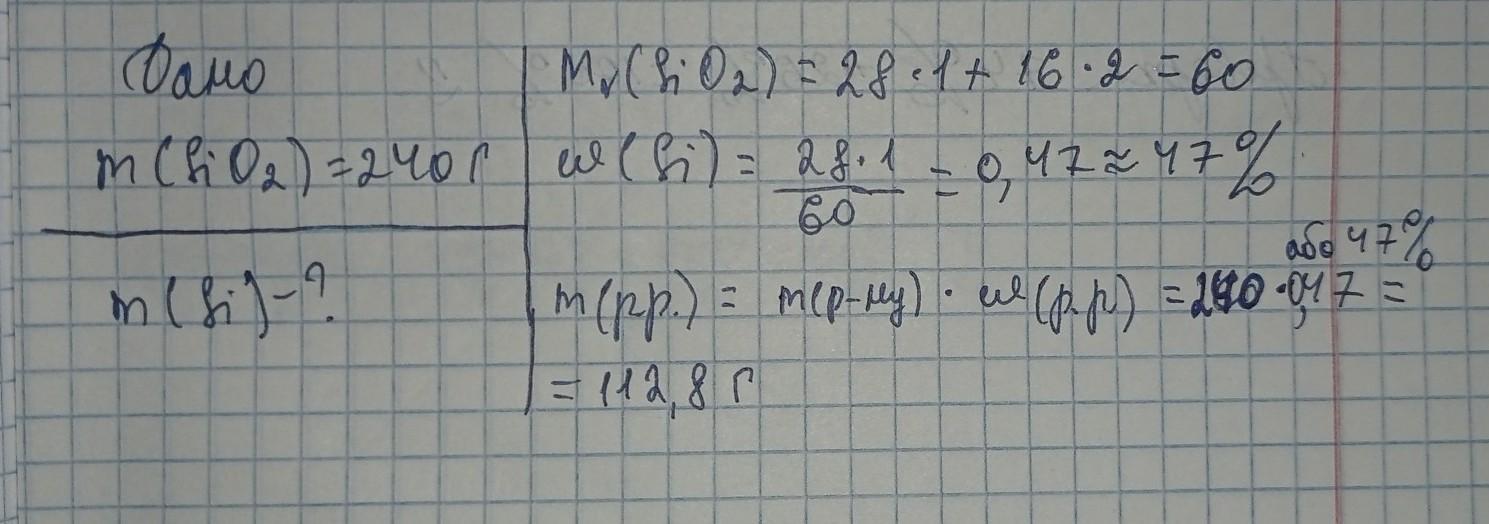 Дано
m(SiO₂)=240г
m(Si)-?
Mr(SiO₂)=28·1+16·2=60
w(Si)=28·1/60=0,47≈47%
або 47%
m(р.р.)=m(р-ну)·w(р.р)=240·0,47=
=112,8 г